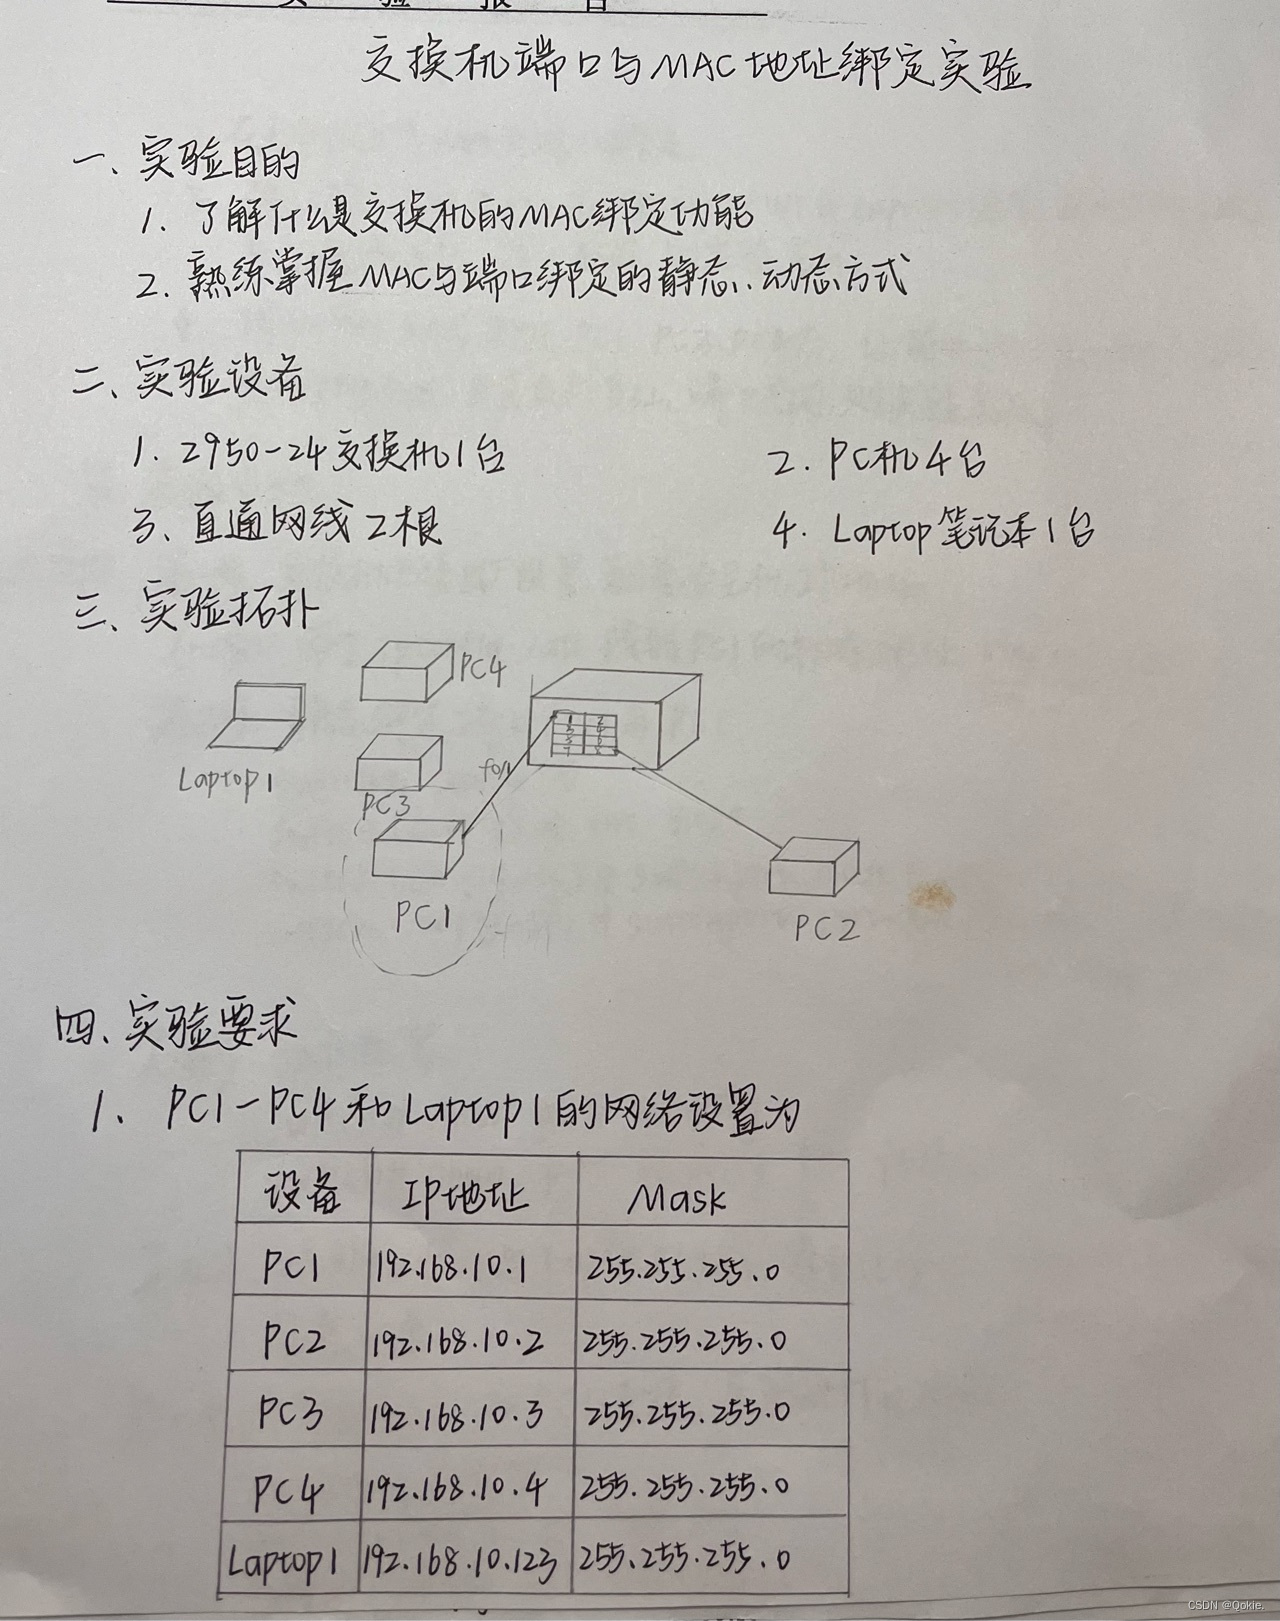 实 验 报 告
交换机端口与MAC地址绑定实验
一、实验目的
1. 了解什么是交换机的MAC绑定功能
2. 熟练掌握MAC与端口绑定的静态、动态方式
二、实验设备
1. 2950-24交换机1台 2. PC机4台
3、直通网线2根 4. Laptop笔记本1台
三、实验拓扑
PC4
Laptop1
PC3
PC1
PC2
四、实验要求
1、PC1-PC4和Laptop1的网络设置为
设备 IP地址 Mask
PC1 192.168.10.1 255.255.255.0
PC2 192.168.10.2 255.255.255.0
PC3 192.168.10.3 255.255.255.0
PC4 192.168.10.4 255.255.255.0
Laptop1 192.168.10.123 255.255.255.0
CSDN @Qokie.